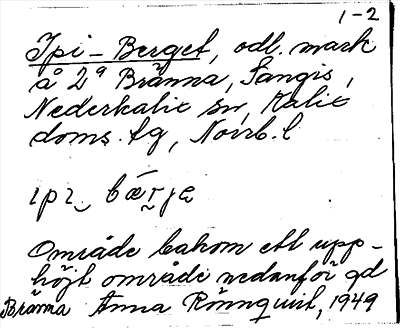 1-2
Ipi-Berget, odl. mark
å 2ª Bränna, Sangis,
Nederkalix sn, Kalix
doms. lg, Norrb. l
ɪpɪ bærjə
Område bakom ett upp-
höjt område nedanför gd
Bränna Anna Rönnquist, 1949